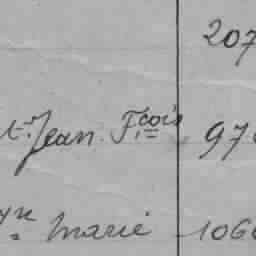 207
t= Jean Fçois 97
yn= Marie 106